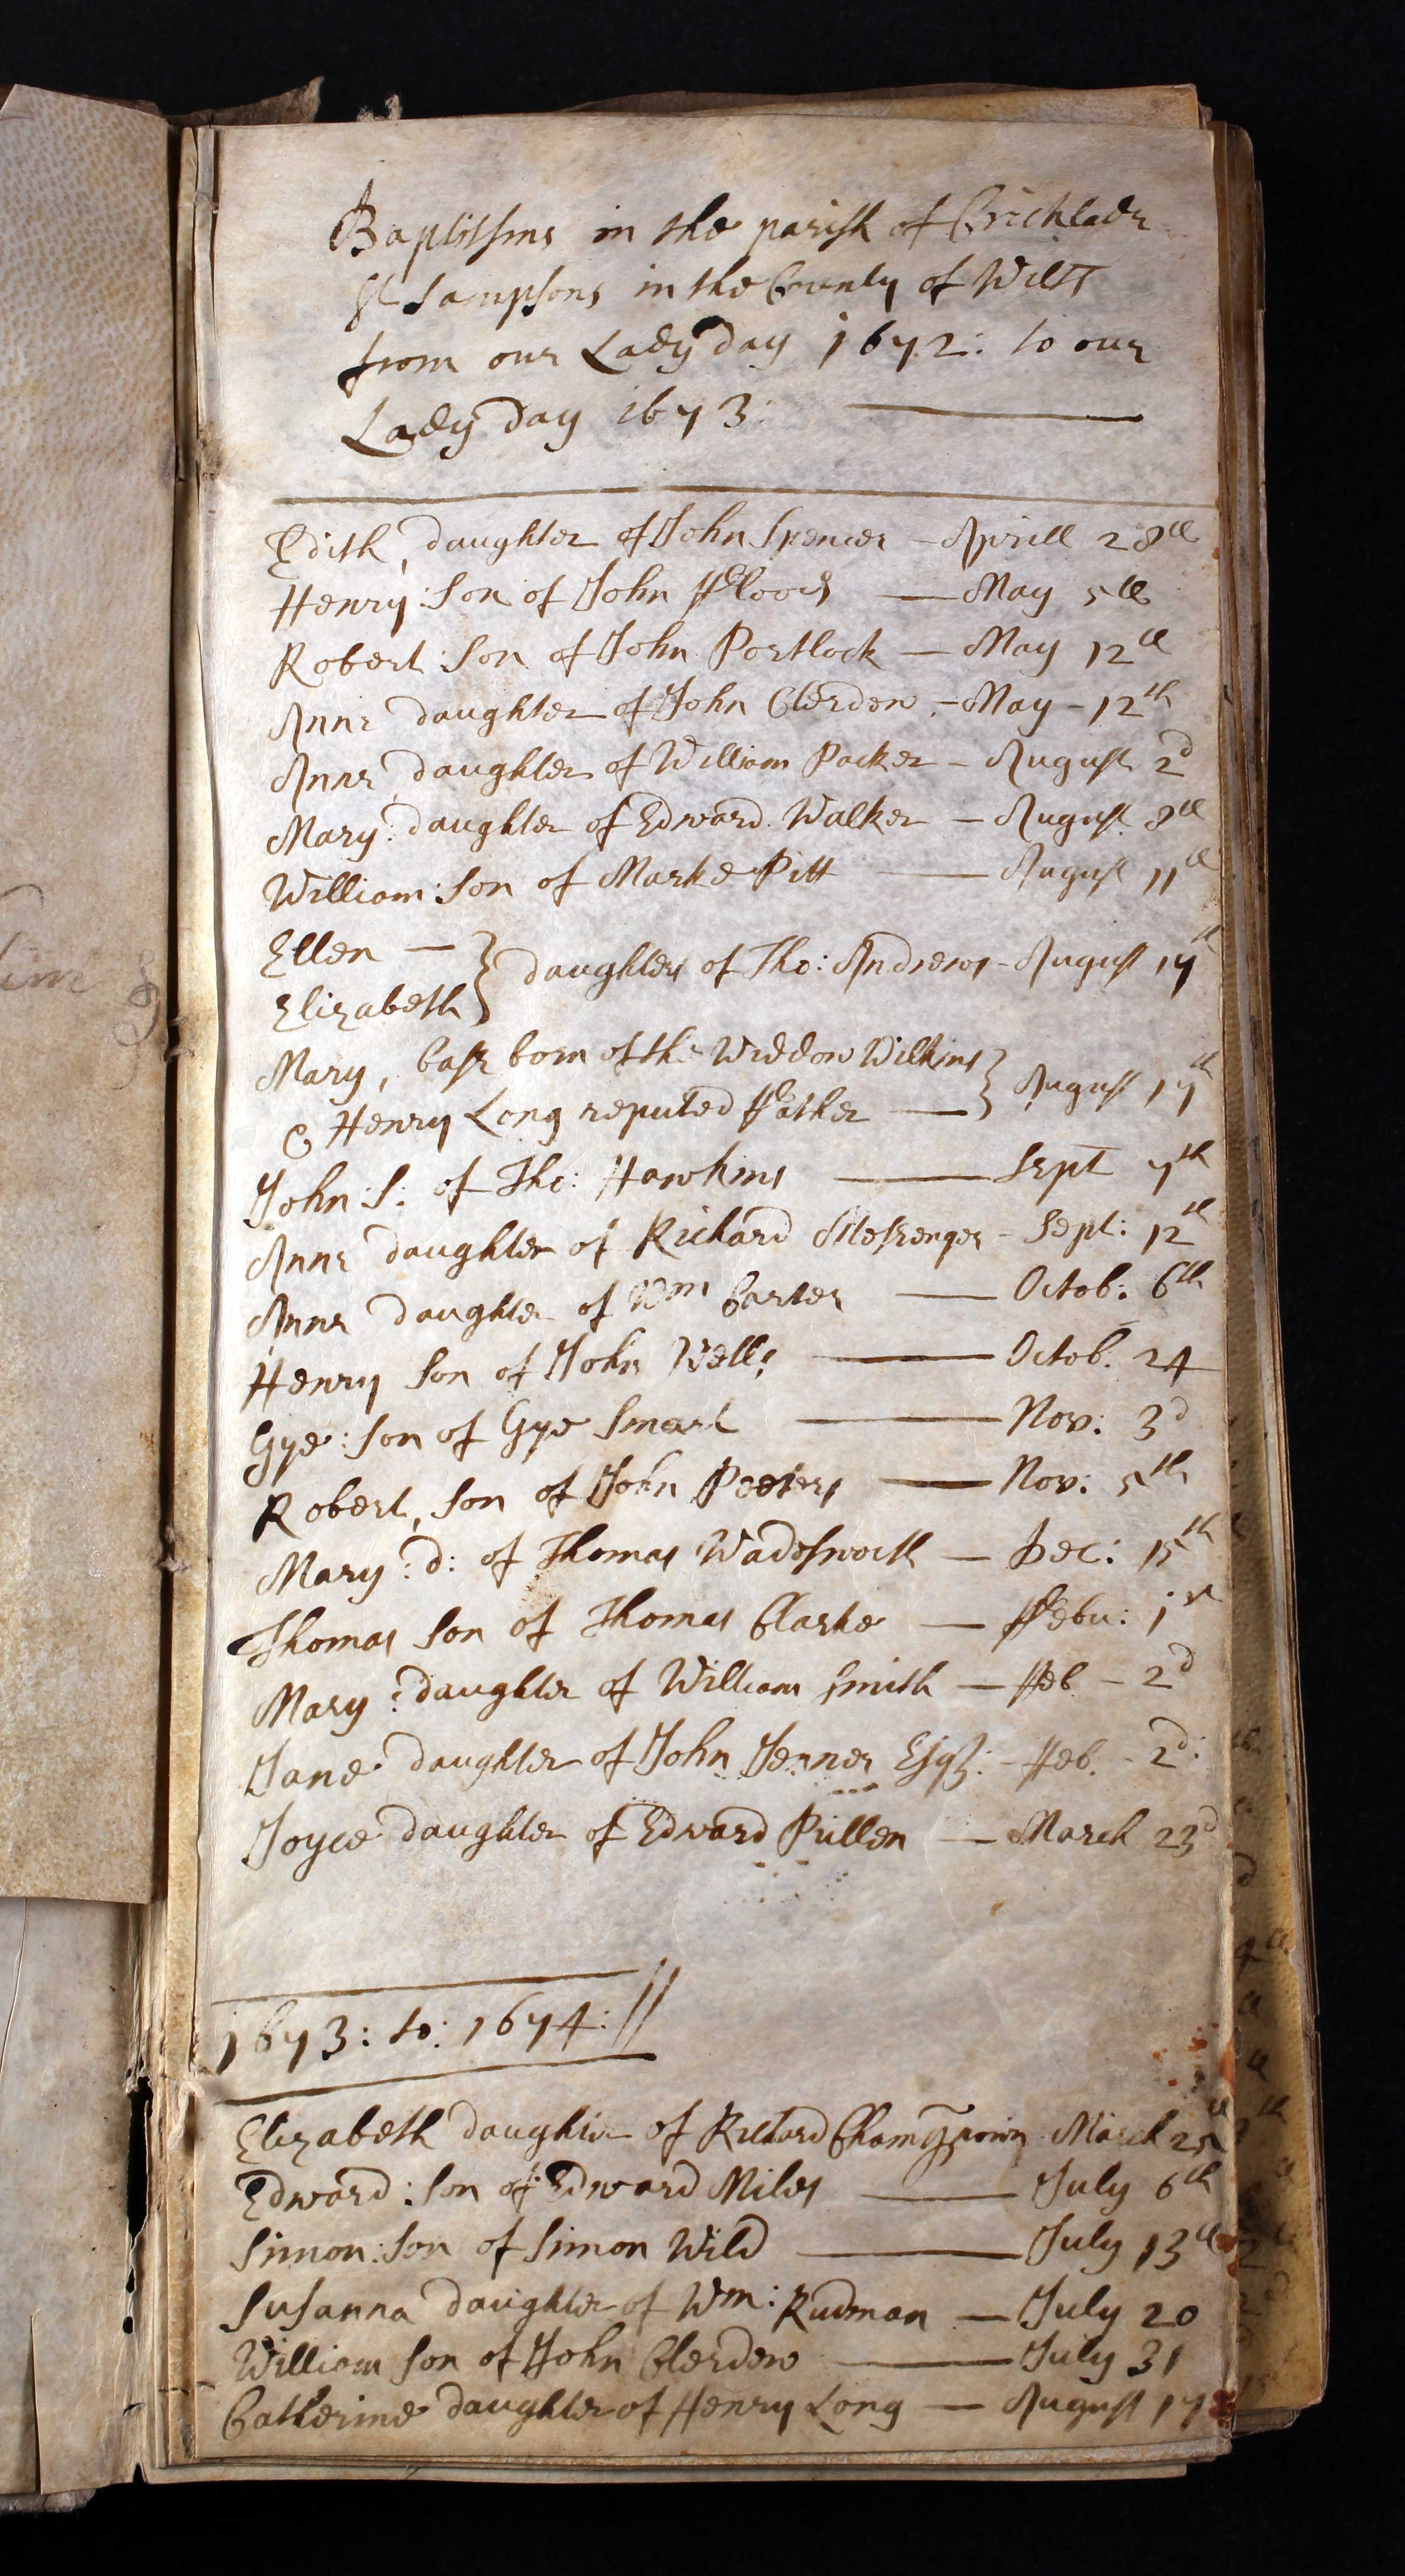 Baptissms in the parish of Cricklade
St Sampsons in the County of Wilts
from our Lady day 1672: to our
Lady day 1673:
Edith, daughter of John Spencer - Aprill 28th
Henry: Son of John Flood — May 5th
Robert Son of John Portlock — May 12th
Anne daughter of John Clerdew - May - 12th
Anne daughter of William Packer - August 2d
Mary: daughter of Edward Walker - August 8th
William: Son of Marke Pitt — August 11th
Ellen —
Elizabeth } daughters of Tho: Andrews - August 17th
Mary, base born of the Widdow Wilkins
& Henry Long reputed ffather — } August 17th
John: S: of Tho: Hawkins — Sept 7th
Anne daughter of Richard Messenger - Sept: 12th
Anne daughter of Wm Carter — Octob: 6th
Henry Son of John Wells — Octob. 24
Gye: son of Gye Smart — Nov: 3d
Robert, Son of John Peeters — Nov: 5th
Mary: d: of Thomas Wadesworth — Dec: 15th
Thomas Son of Thomas Clarke — ffebu: 1st
Mary: daughter of William Smith — ffeb - 2d
Jane daughter of John Jenner Esq: - ffeb. - 2d:
Joyce daughter of Edward Pullen — March 23d
1673: to: 1674: //
Elizabeth daughter of Richard March 25th
Edward: Son of Edward Miles — July 6th
Simon: Son of Simon Wild — July 13th
Susanna daughter of Wm: Rudman — July 20
William Son of John Clerdew — July 31
Catherine daughter of Henry Long — August 17